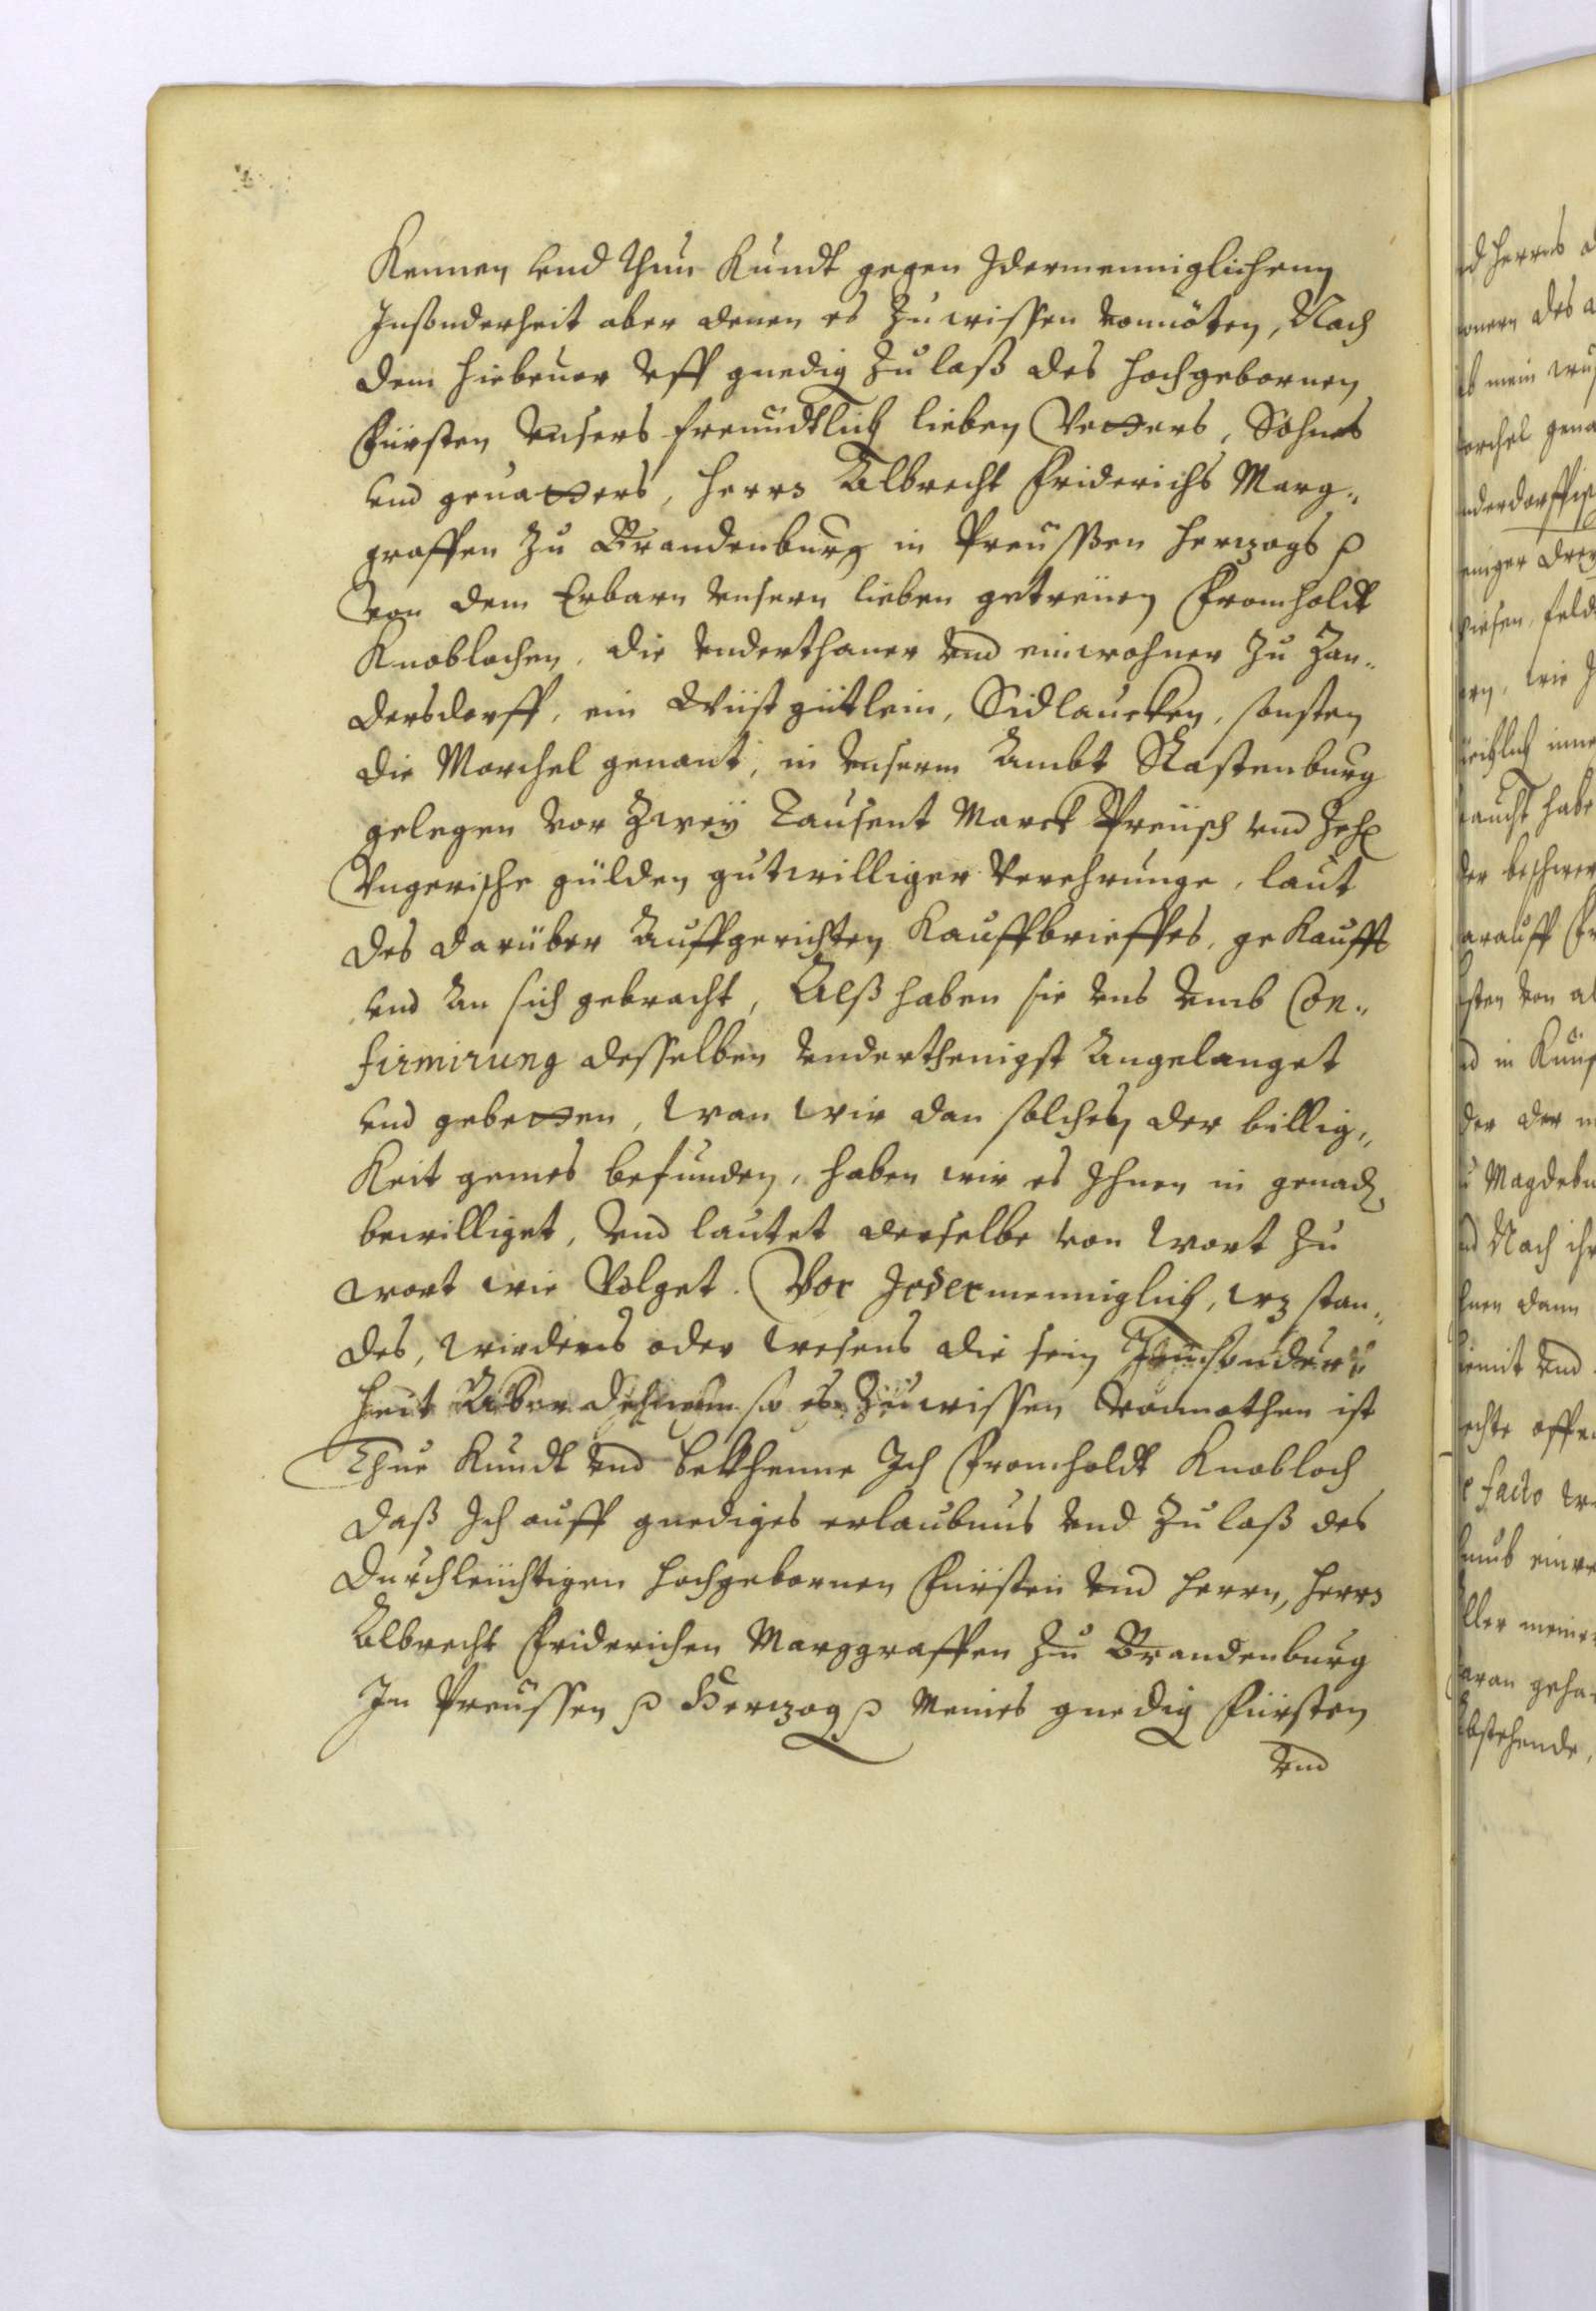 Kennen vnd thun Kundt gegen Idermenniglichenn
Insonderheit aber denen es zu wissen vonnöten, Nach
dem hiebeuor vff gnedig zulaß des hochgebornen
Fürsten vnsers freundtlich lieben Vettern, Sohnes
vnd geuattern, herrn Albrecht Friderichs Marg„
graffen zu Brandenburg in Preussen herzogs p
von dem Erbarn vnsern lieben getreüen Fromholdt
Knoblochen, die vnderthaner vnd einwohner zu Zan„
dersdorff, ein Wüst gütlein, Sidlaucken, sonsten
die Morchel genant, in vnserm Ambt Rastenburg
gelegen vor Zweÿ Tausent Marck Preüsch vnd Zehn
Vngerische gülden gutwilliger Verehrunge, laut
des darüber Auffgerichten Kauffbrieffes, gekaufft
vnd An sich gebracht, Alß haben sie vns vmb Con„
firmirung desselben vnderthenigst Angelanget
vnd gebetten, wan wir dan solches der billig„
keit gemes befunden, haben wir es Ihnen in genad
bewilliget, vnd lautet derselbe von wort zu
wort wie Volget. Vor Jedermenniglich, wz stan„
des, wirdens oder wesens die sein Innsonder„
heit Aber dehnen so es zuwissen vonnothen ist
Thue Kundt vnd bekhenne Ich Fromholdt Knobloch
daß Ich auff gnediges erlaubnus vnd zulaß des
Durchleüchtigen hochgebornen Fürsten vnd herrn, herrn
Albrecht Friderichen Marggraffen zu Brandenburg
In Preussen p Herzog p Meines gnedig Fürsten
vnd